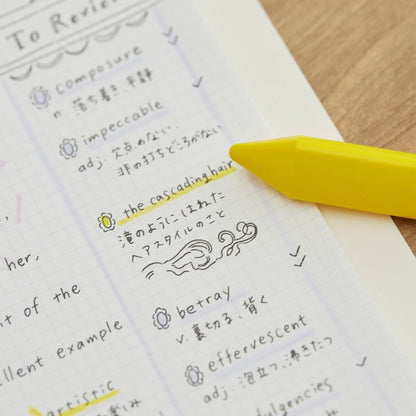 To Review
composure
n. 落ち着き、平静
impeccable
adj. 欠点のない、
非の打ちどころがない
the cascading hair
滝のようにはねた
ヘアスタイルのこと
betray
v. 裏切る、背く
effervescent
adj. 泡立つ、沸きたつ
indulgencies
her,
of the
example
artistic